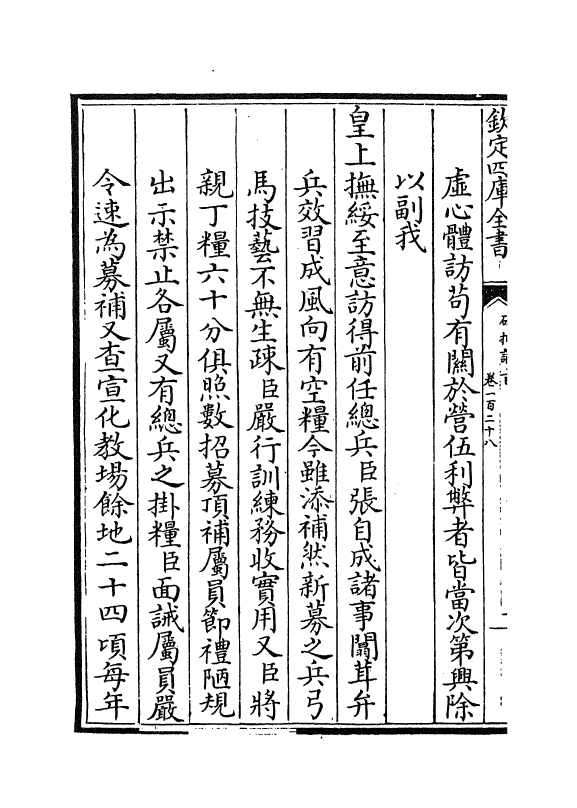 欽定四庫全書
卷一百二十八
虛心體訪茍有關於營伍利弊者皆當次第興除
以副我
皇上撫綏至意訪得前任總兵臣張自成諸事闒茸弁
兵效習成風向有空糧今雖添補然新募之兵弓
馬技藝不無生疎臣嚴行訓練務收實用又臣將
親丁糧六十分俱照數招募頂補屬員節禮陋規
出示禁止各屬又有總兵之掛糧臣面誡屬員嚴
令速為募補又查宣化教場餘地二十四頃每年